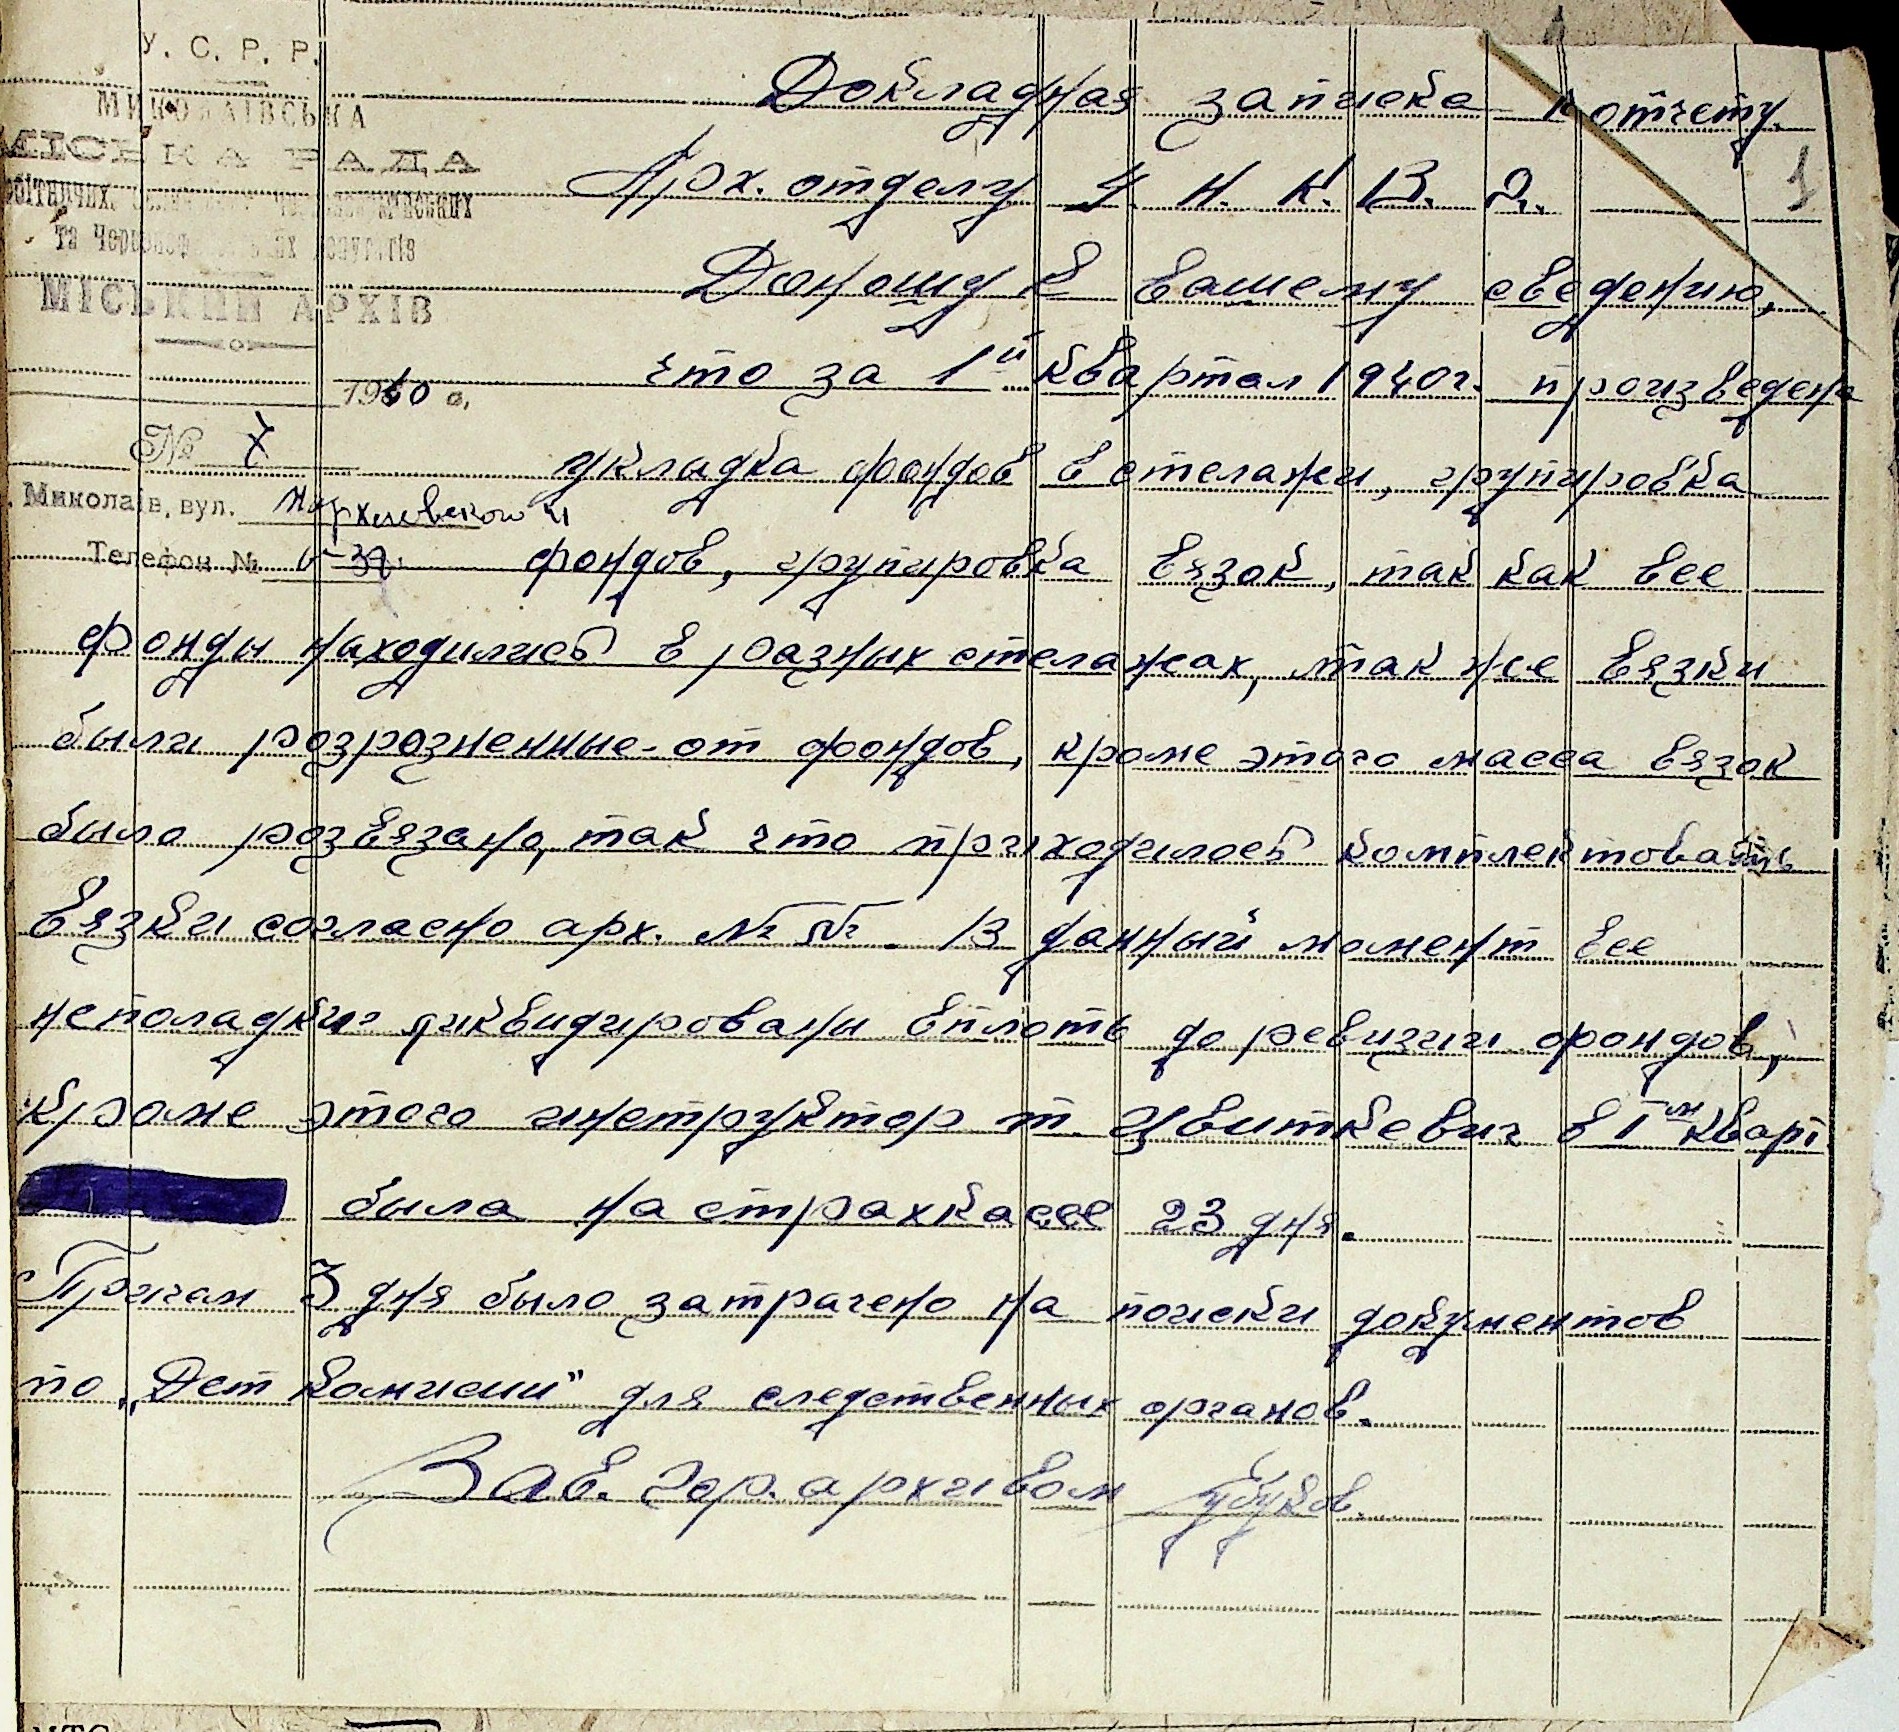 У. С. Р. Р.
МИКОЛАЇВСЬКА
МІСЬКА РАДА
та
МІСЬКИЙ АРХІВ
1940 р.
№ 7
Миколаїв, вул. Мархлевского
Телефон №
Докладная записка к отчету
1
Арх. отделу У. Н. К. В. Д.
Доношу к вашему сведению,
что за 1й квартал 1940г. произведена
укладка фондов в стелажи, групировка
фондов, групировка вязок, так как все
фонды находились в разных стелажах, так же вязки
были розрозненные от фондов, кроме этого масса вязок
было розвязано, так что приходилось комплектовать
вязки согласно арх. №№. В данный момент все
неполадки ликвидировани вплоть до ревизии фондов,
кроме этого инструктор т. Цвиткевич в 1м кварт.
была на страхкассе 23 дня.
Причам 3 дня было затрачено на поиски документов
по „Дет комисии" для следственных органов.
Зав. гор. архивом